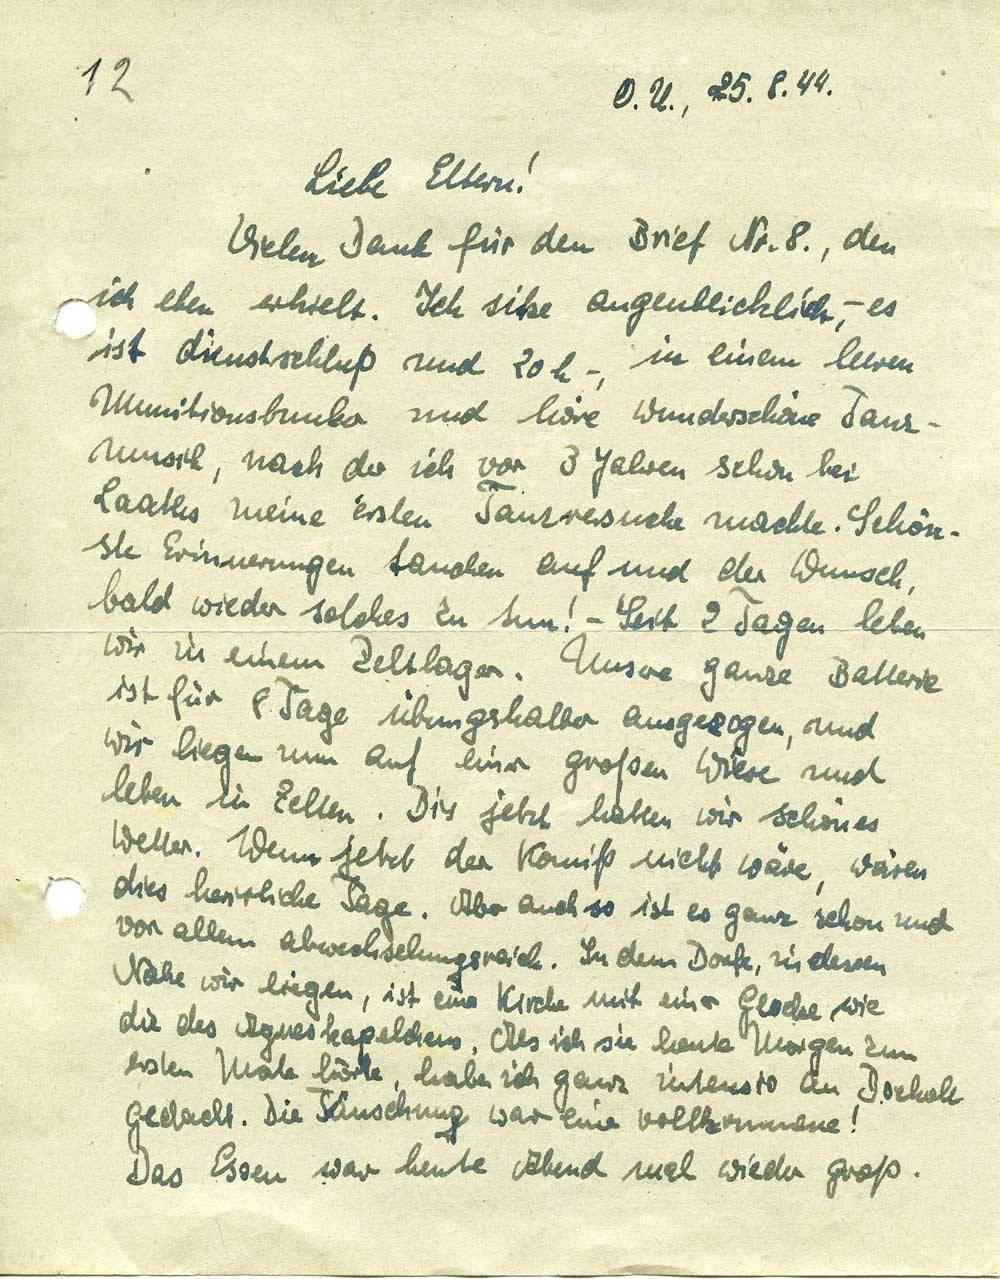 12
O.U., 25.8.44.
Liebe Eltern!
Vielen Dank für den Brief Nr. 8., den
ich eben erhielt. Ich sitze augenblicklich, - es
ist dienstschluß und 20 h -, in einem leeren
Munitionsbunker und höre wunderschöne Tanz-
musik, nach der ich vor 3 Jahren schon bei
meine ersten Tanzversuche machte. Schön-
ste Erinnerungen tauchen auf und der Wunsch,
bald wieder solches zu tun! - Seit 2 Tagen leben
wir in einem Zeltlager. Unsre ganze Batterie
ist für 8 Tage übungshalber ausgezogen, und
wir liegen nun auf einer großen Wiese und
leben in Zelten. Bis jetzt hatten wir schönes
Wetter. Wenn jetzt der Komiß nicht wäre, wären
dies herrliche Tage. Aber auch so ist es ganz schön und
vor allem abwechselungsreich. In dem Dorfe, in dessen
Nähe wir liegen, ist eine Kirche mit einer Glocke wie
die des Agneskapellchens. Als ich sie heute Morgen zum
ersten Male hörte, habe ich ganz intensiv an Bocholt
gedacht. Die Täuschung war eine vollkommene!
Das Essen war heute Abend mal wieder groß.